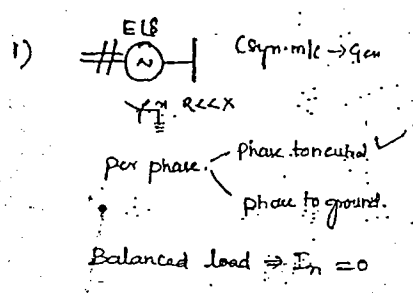 1)
E∠δ
~
(Syn.m/c → Gen
R<<X
Per phase.
Phase to neutral ✓
phase to ground.
Balanced load ⇒ In = 0